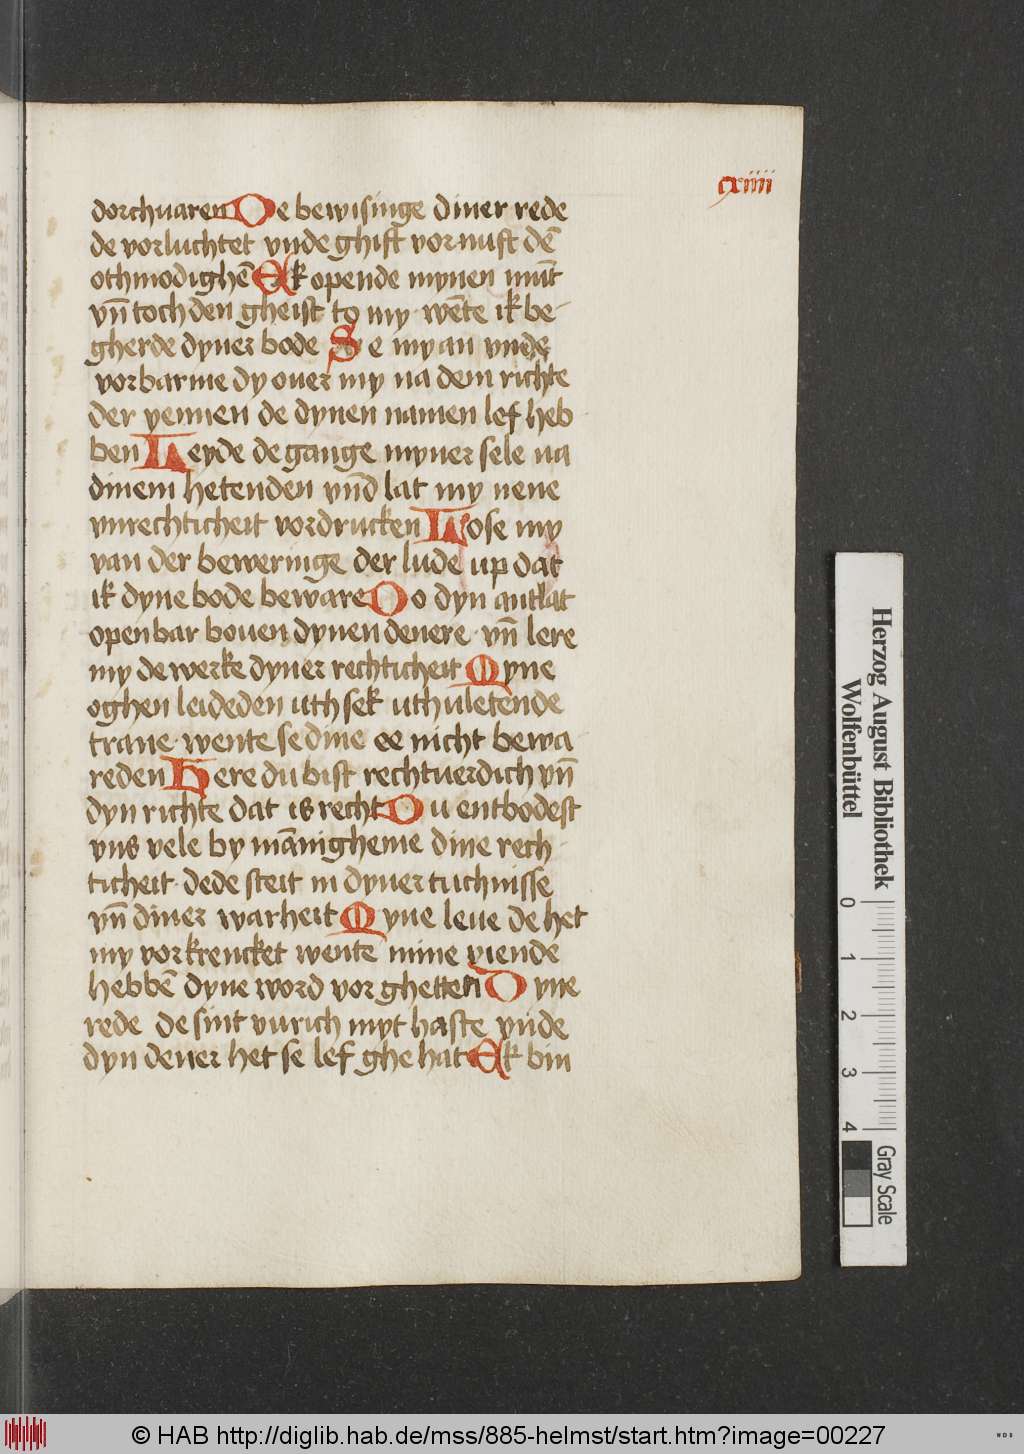 cxiiii
dorchuaren De bewisinge diner rede
de vorluchtet vnde ghift vornuft dē
othmodighē Ek opende mynen mūt
vn̄ toch den gheist to my · wēte ik be-
gherde dyner bode Se my an vnde
vorbarme dy ouer my na dem richte
der yennen de dynen namen lef heb
ben Leyde de gange myner sele na
dinem hetenden vn̄d lat my nene
vnrechticheit vordrucken Lose my
van der beweringe der lude up dat
ik dyne bode beware Do dyn antlat
openbar bouen dynen denere · vn̄ lere
my de werke dyner rechticheit Myne
oghen leideden uth sek uthuletende
trane · wente se dine ee nicht bewa
reden Here du bist rechtuerdich vn̄
dyn richte dat is recht Du entbodest
vns vele by mānigheme dine rech
ticheit · dede steit in dyner tuchnisse
vn̄ diner warheit Myne leue de het
my vorkrencket wente mine viende
hebbē dyne word vorghetten Dyne
rede de sint vurich myt haste vnde
dyn dener het se lef ghehat Ek bin
Herzog August Bibliothek
Wolfenbüttel
0 1 2 3 4
Gray Scale
© HAB http://diglib.hab.de/mss/885-helmst/start.htm?image=00227